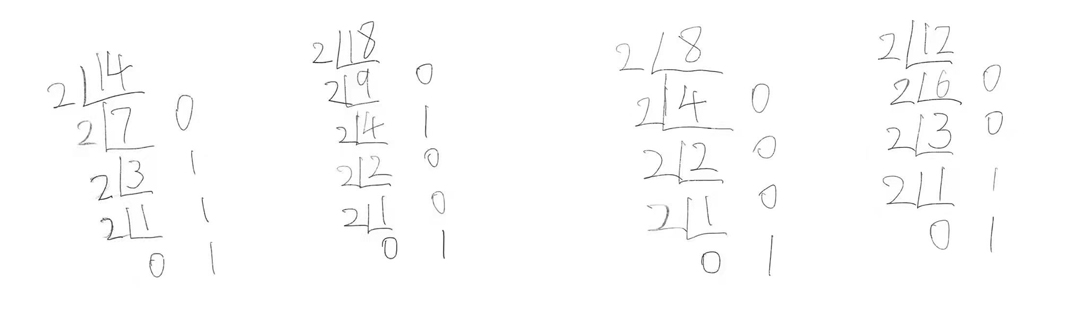 2 14
2 7 0
2 3 1
2 1 1
0 1
2 18
2 9 0
2 4 1
2 2 0
2 1 0
0 1
2 8
2 4 0
2 2 0
2 1 0
0 1
2 12
2 6 0
2 3 0
2 1 1
0 1